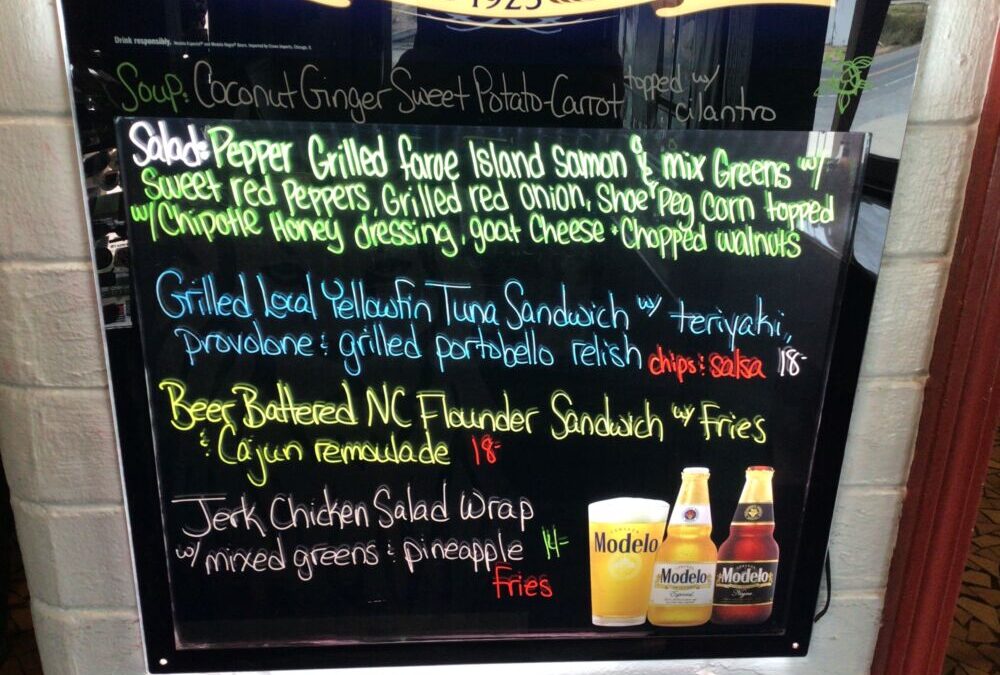 1925
Drink responsibly.
Soup: Coconut Ginger Sweet Potato-Carrot topped w/
cilantro
Salad: Pepper Grilled faroe Island Samon & mix Greens w/
Sweet red Peppers, Grilled red onion, Shoe Peg Corn topped
w/ Chipotle Honey dressing, goat Cheese & Chopped walnuts
Grilled Local Yellowfin Tuna Sandwich w/ teriyaki,
provolone & grilled portobello relish chips & salsa 18-
Beer Battered NC Flounder Sandwich w/ Fries
& Cajun remoulade 18-
Jerk Chicken Salad Wrap
w/ mixed greens & pineapple 14-
Fries
Modelo
Modelo
Especial
Modelo
Negra